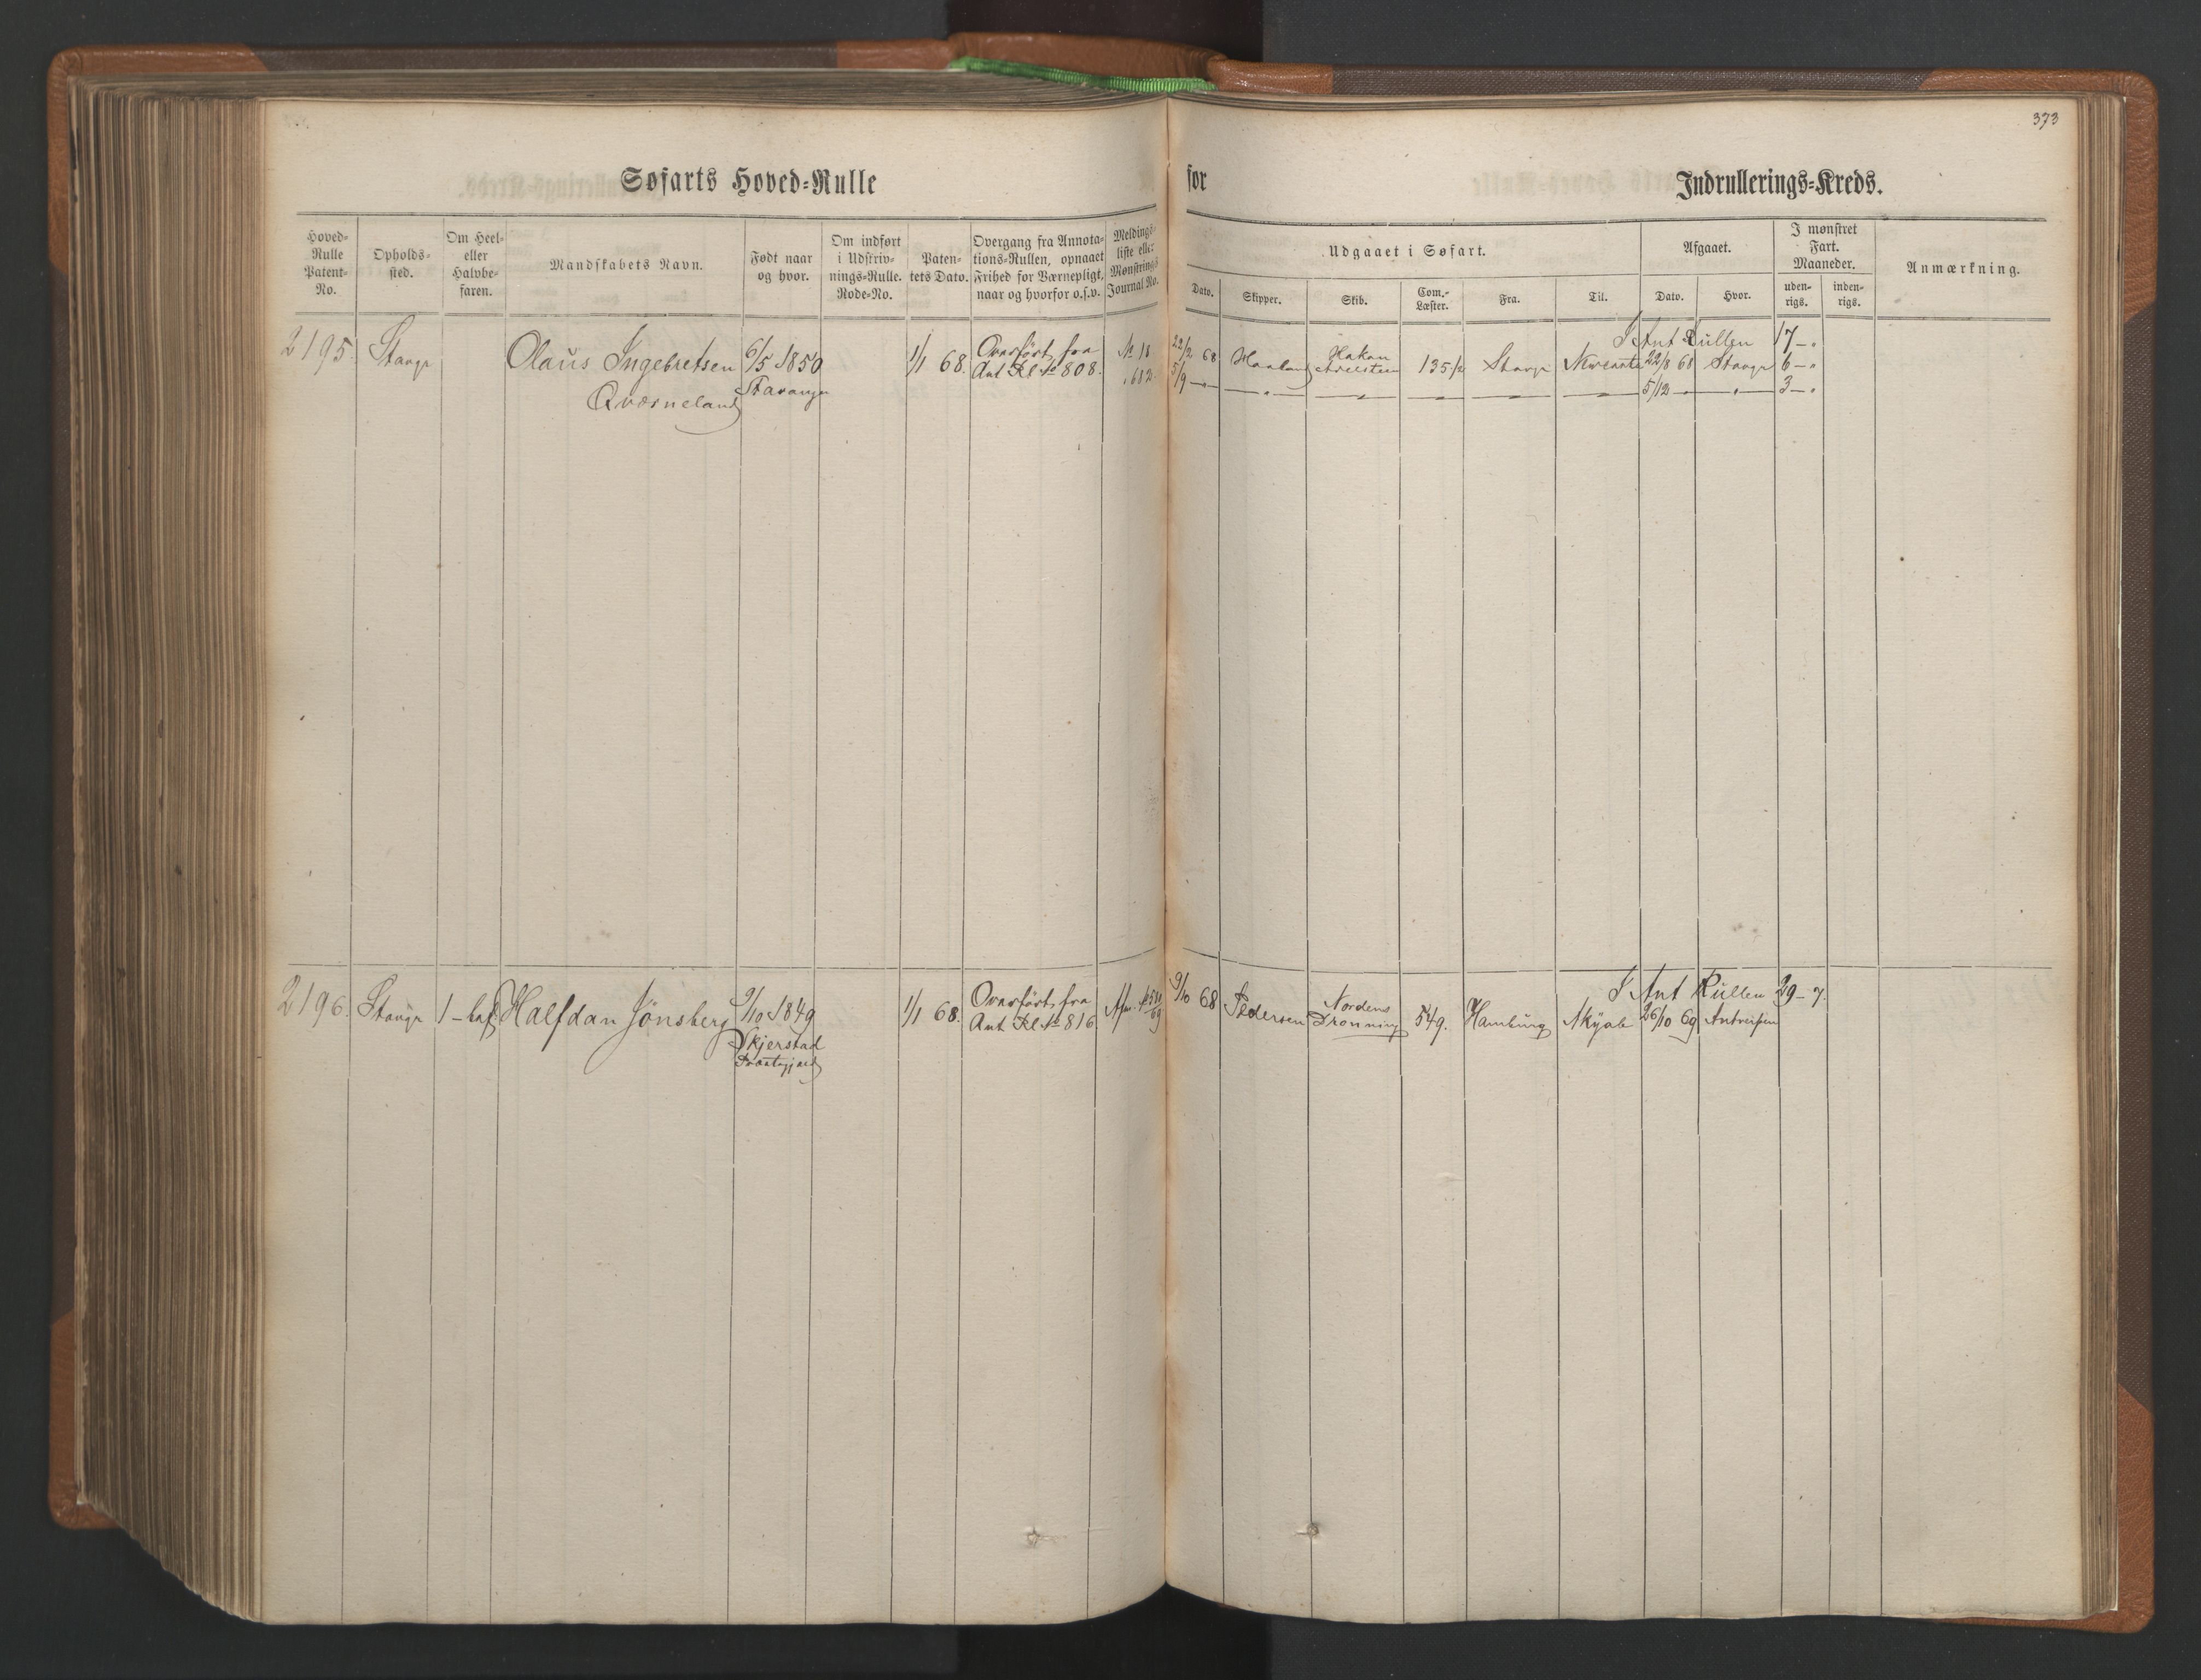 373
Søfarts Hoved=Rulle for Indrullerings=Kreds.
Hoved=Rulle Patent=No.
Opholds=sted.
Om Heel= eller Halvbe=faren.
Mandskabets Navn.
Født naar og hvor.
Om indført i Udskriv=nings=Rulle. Rode=No.
Paten=tets Dato.
Overgang fra Annota=tions=Rullen, opnaaet Frihed for Værnepligt, naar og hvorfor o.s.v.
Meldings=liste eller Mønstrings Journal No.
Udgaaet i Søfart.
Dato.
Skipper.
Skib.
Com.=Læster.
Fra.
Til.
Afgaaet.
Dato.
Hvor.
I mønstret Fart. Maaneder.
uden=rigs.
inden=rigs.
Anmærkning.
I Ant Rullen 17 - "
2195. Stavgr Olaus Ingebretsen 6/5 1850 1/1 68. Overført fra No 18 22/2 68 Haaland Hakon 135 1/2 Stavgr 22/8 68 Stavgr 6 - "
Qværneland Stavanger Ant Rl No 808. " 612. 5/9 — " — Adelsteen 5/12 — " — 3 - "
I Ant Rullen 29 - 7.
2196. Stavgr 1 - hal Halfdan Jönsberg 9/10 1849 1/1 68. Overført fra 9/10 68 Pedersen Nordens 549. Hamburg Akyab 26/10 69 Antverpen
Skjerstad Ant Rl No 816 Dronning
Præstegjæld